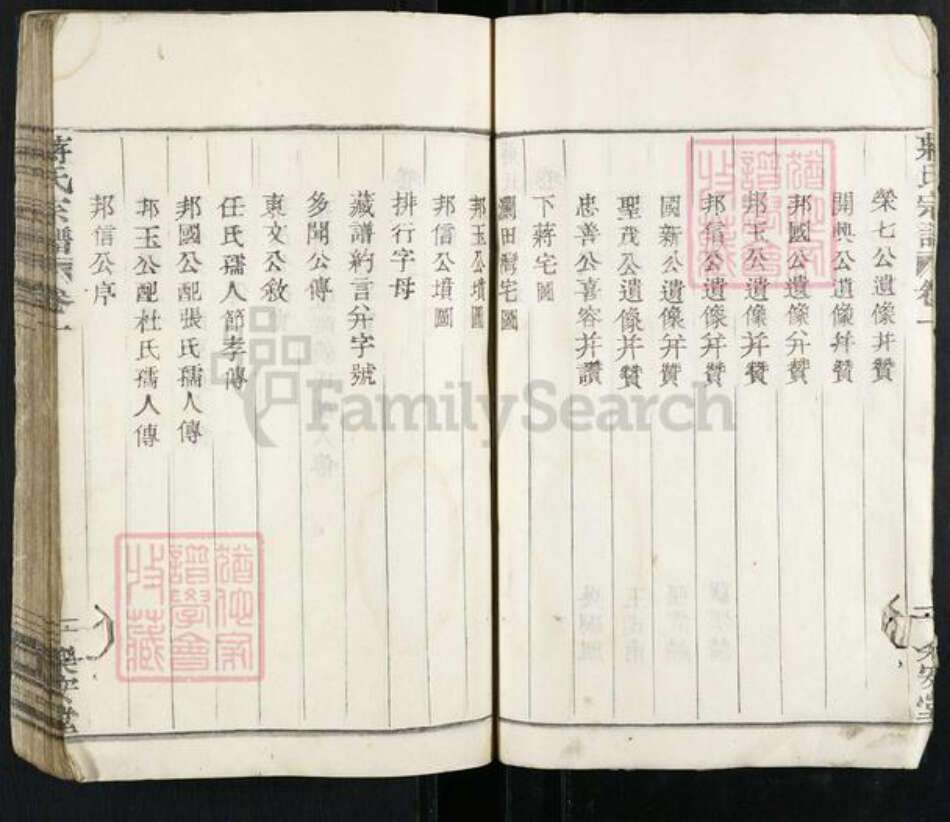 榮七公遺像并贊
開興公遺像并贊
邦國公遺像并贊
邦玉公遺像并贊
邦信公遺像并贊
國新公遺像并贊
聖茂公遺像并贊
忠善公喜容并讚
下蔣宅圖
瀾田灣宅圖
邦玉公墳圖
邦信公墳圖
排行字母
藏譜約言并字號
多聞公傳
東文公敘
任氏孺人節孝傳
邦國公配張氏孺人傳
邦玉公配杜氏孺人傳
邦信公序
蔣氏宗譜
卷一
二
樂安堂
蔣氏宗譜
卷一
樂安堂
猶他家譜學會收藏
猶他家譜學會收藏
FamilySearch